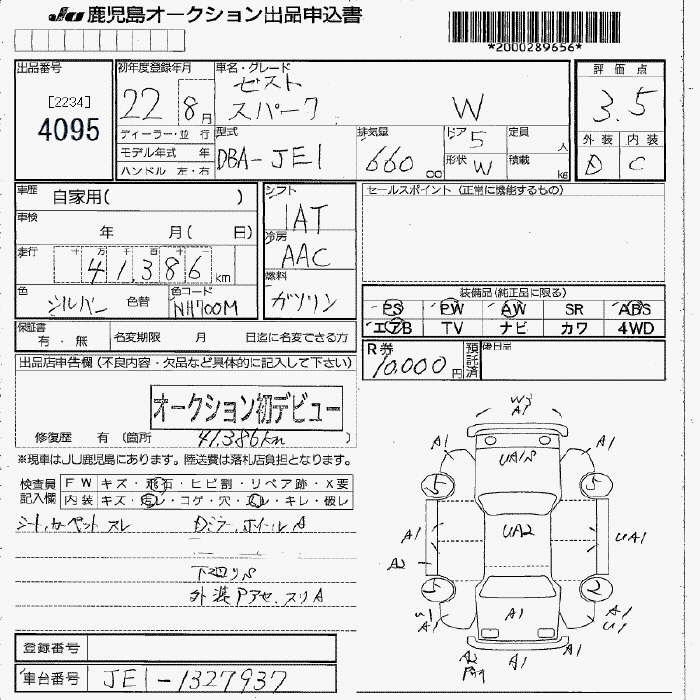 JU 鹿児島オークション出品申込書
*2000289656*
出品番号
[2234]
4095
初年度登録年月
22 8月
車名・グレード
ゼスト
スパーク W
評価点
3.5
外装 内装
D C
ディーラー・並行
モデル年式 年
ハンドル 左・右
型式
DBA-JE1
排気量
660 cc
ドア 5
形状 W
定員 人
積載 kg
車歴 自家用( )
車検 年 月( 日)
走行 十万千百十
41,386 km
色 シルバー 色替
色コード NH700M
シフト
IAT
冷房
AAC
燃料
ガソリン
セールスポイント (正常に機能するもの)
装備品(純正品に限る)
PS PW AW SR ABS
エアB TV ナビ カワ 4WD
保証書 有・無 名変期限 月 日迄に名変できる方
R券 10,000円
預託済
後日品
出品店申告欄(不良内容・欠品など具体的に記入して下さい)
オークション初デビュー
修復歴 有 (箇所 41,386km )
※現車はJU鹿児島にあります。陸送費は落札店負担となります。
検査員記入欄
FW キズ・飛石・ヒビ割・リペア跡・X要
内装 キズ・汚レ・コゲ・穴・スレ・キレ・破レ
シート、カーペット スレ Dミラー、ホイールA
下廻りS
外装Pアセ、スリA
W3
A1
A1 A1
UA1S
5 5
A1 UA2 UA1
A2
5 2
U1 A1 A1 A1 U1
A2 A1 A1
登録番号
車台番号 JE1-1327937